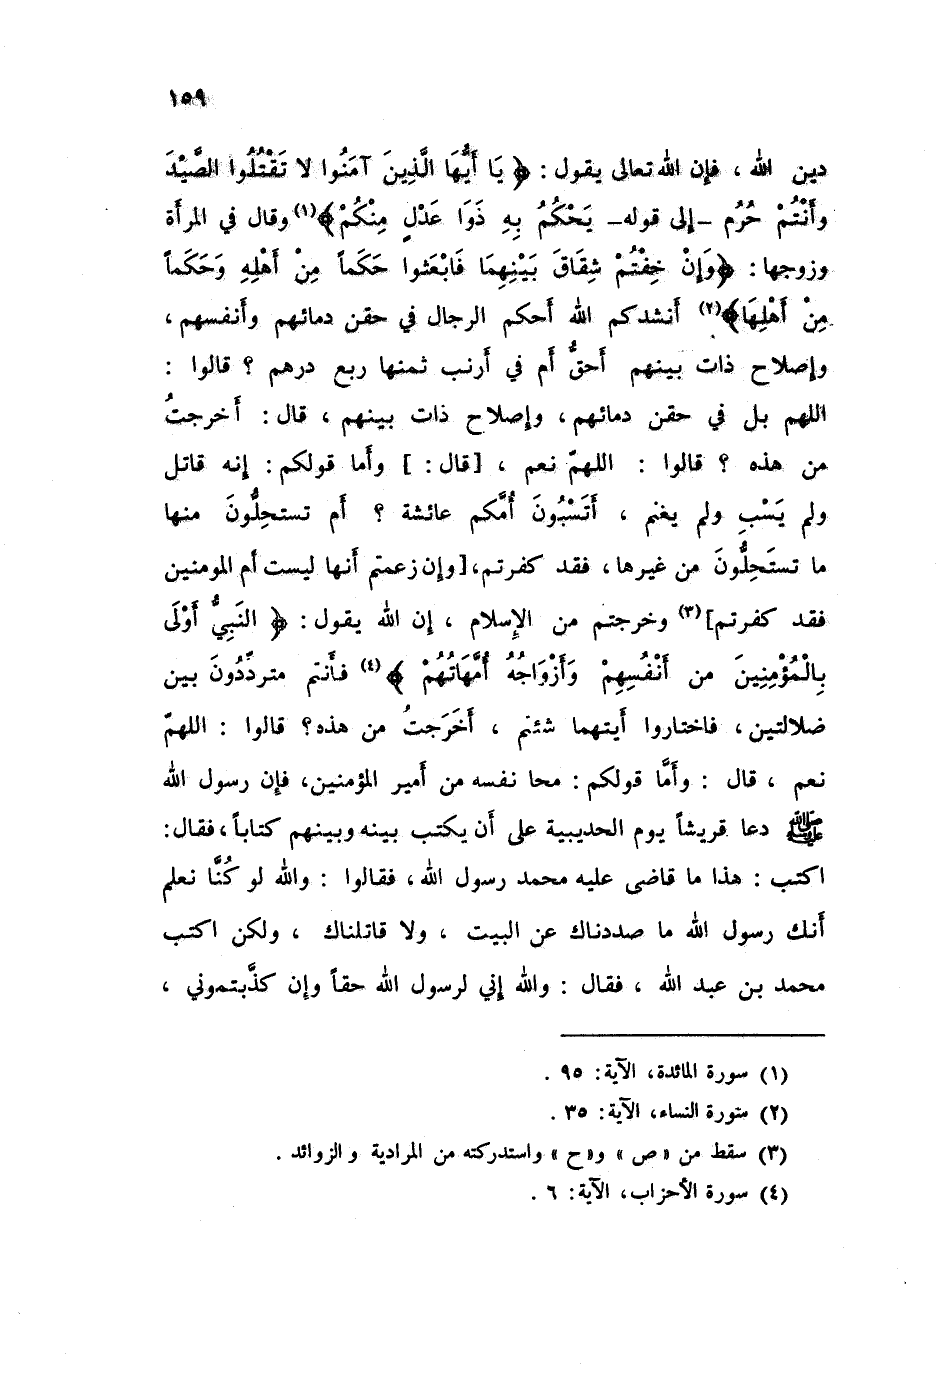 ١٥٩
دين الله ، فإن الله تعالى يقول : ﴿ يَا أَيُّهَا الَّذِينَ آمَنُوا لا تَقْتُلُوا الصَّيْدَ
وأَنْتُمْ حُرُم -إلى قوله- يَحْكُمُ بِهِ ذَوَا عَدْلٍ مِنْكُمْ﴾(١) وقال في المرأة
وزوجها : ﴿وَإِنْ خِفْتُمْ شِقَاقَ بَيْنِهِمَا فَابْعَثوا حَكَماً مِنْ أَهْلِهِ وَحَكَماً
مِنْ أَهْلِهَا﴾(٢) أَنشدكم الله أَحكم الرجال في حقن دمائهم وأَنفسهم ،
وإصلاح ذات بينهم أَحقُّ أَم في أَرنب ثمنها ربع درهم ؟ قالوا :
اللهم بل في حقن دمائهم ، وإصلاح ذات بينهم ، قال : أَخرجتُ
من هذه ؟ قالوا : اللهمّ نعم ، [قال : ] وأَما قولكم : إنه قاتل
ولم يَسْبِ ولم يغنم ، أَتَسْبُونَ أُمَّكم عائشة ؟ أَم تستحِلُّونَ منها
ما تستَحِلُّونَ من غيرها ، فقد كفرتم ، [وإن زعمتم أَنها ليست أم المومنين
فقد كفرتم](٣) وخرجتم من الإسلام ، إن الله يقول : ﴿ النَبِيُّ أَوْلَى
بِالْمُؤْمِنِينَ من أَنْفُسِهِمْ وَأَزْوَاجُهُ أُمَّهَاتُهُمْ ﴾(٤) فأَنتم متردِّدُونَ بين
ضلالتين ، فاختاروا أَيتهما شئتم ، أَخَرَجتُ من هذه؟ قالوا : اللهمّ
نعم ، قال : وأَمَّا قولكم : محا نفسه من أَمير المؤمنين، فإن رسول الله
ﷺ دعا قريشاً يوم الحديبية على أَن يكتب بينه وبينهم كتاباً ، فقال :
اكتب : هذا ما قاضى عليه محمد رسول الله ، فقالوا : والله لو كُنَّا نعلم
أَنك رسول الله ما صددناك عن البيت ، ولا قاتلناك ، ولكن اكتب
محمد بن عبد الله ، فقال : والله إني لرسول الله حقاً وإن كذَّبتموني ،
(١) سورة المائدة، الآية: ٩٥ .
(٢) سورة النساء، الآية: ٣٥ .
(٣) سقط من «ص» و«ح» واستدركته من المرادية و الزوائد .
(٤) سورة الأحزاب، الآية: ٦ .